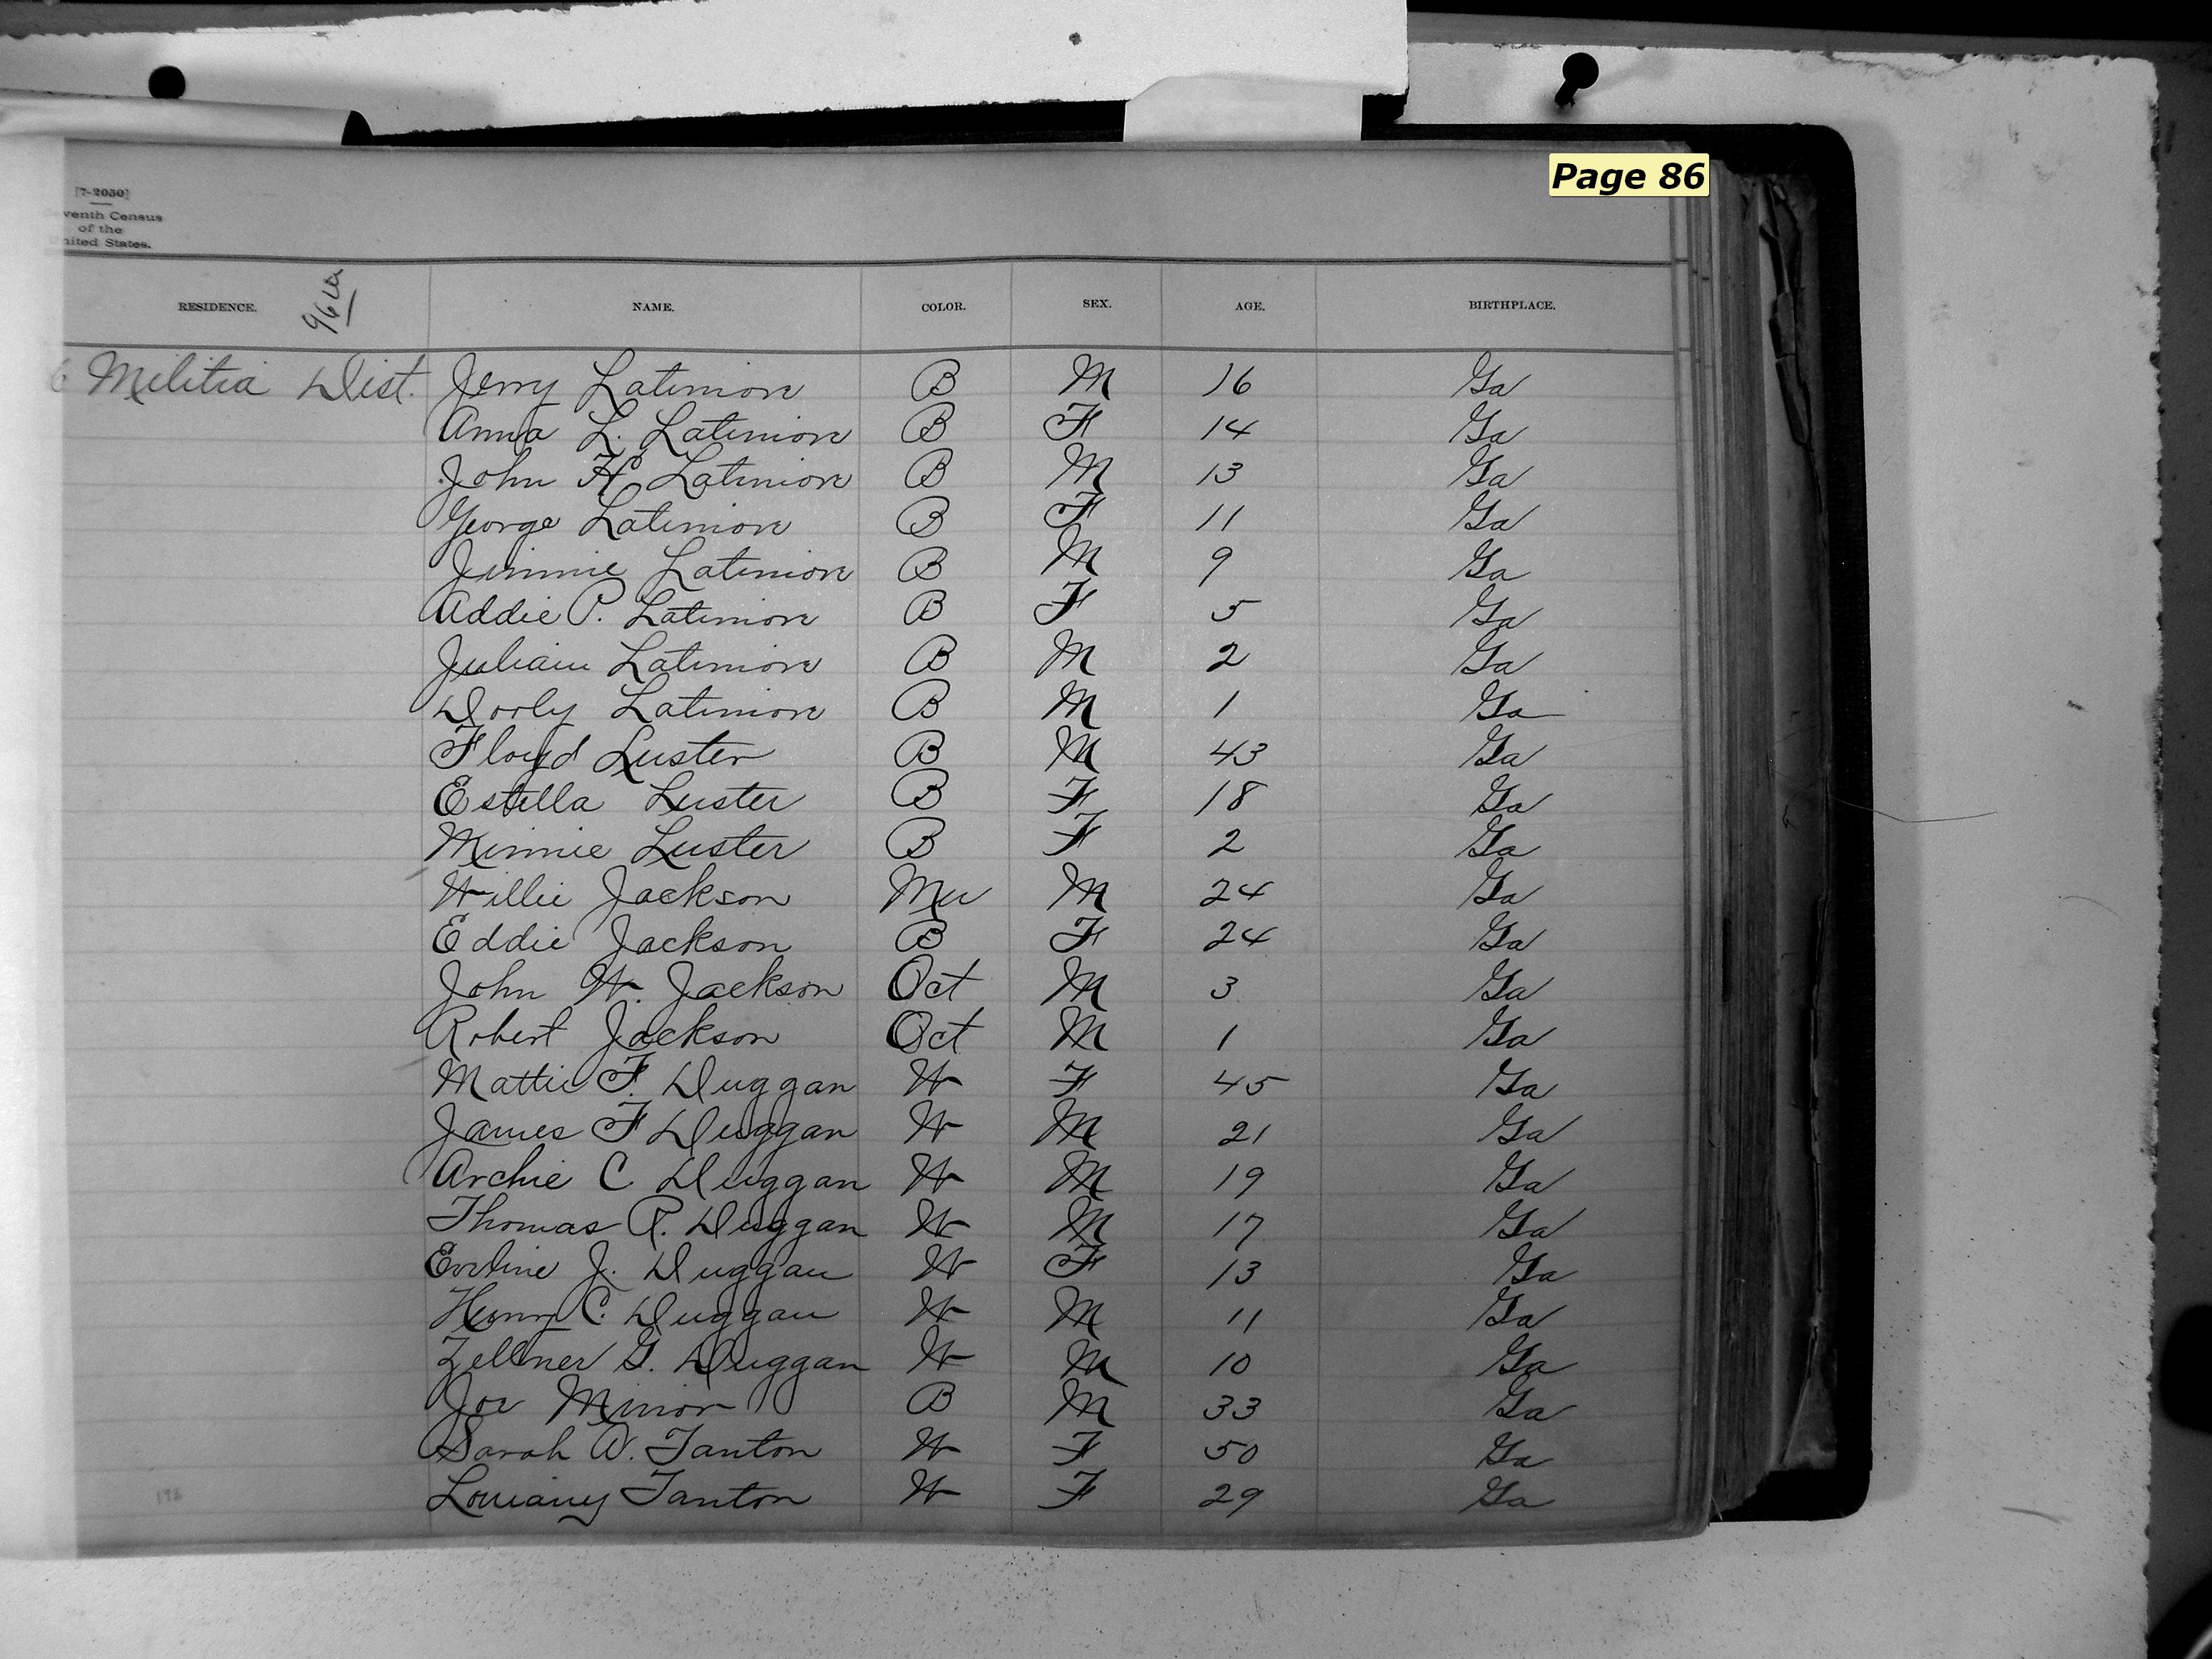 Page 86
[7-2050]
venth Census
of the
nited States.
RESIDENCE. NAME. COLOR. SEX. AGE. BIRTHPLACE.
6 Militia Dist. Jerry Latimore B M 16 Ga
Anna L. Latimore B F 14 Ga
John H Latimore B M 13 Ga
George Latimore B F 11 Ga
Jimmie Latimore B M 9 Ga
Addie P. Latimore B F 5 Ga
Juliain Latimore B M 2 Ga
Dooly Latimore B M 1 Ga
Floyd Luster B M 43 Ga
Estella Luster B F 18 Ga
Minnie Luster B F 2 Ga
Willie Jackson Mu M 24 Ga
Eddie Jackson B F 24 Ga
John W. Jackson Oct M 3 Ga
Robert Jackson Oct M 1 Ga
Mattie F. Duggan W F 45 Ga
James F Duggan W M 21 Ga
Archie C Duggan W M 19 Ga
Thomas R. Duggan W M 17 Ga
Evoline J. Duggan W F 13 Ga
Henry C. Duggan W M 11 Ga
Zellner G. Duggan W M 10 Ga
Joe Minor B M 33 Ga
Sarah A. Tanton W F 50 Ga
Tanton W F 29 Ga